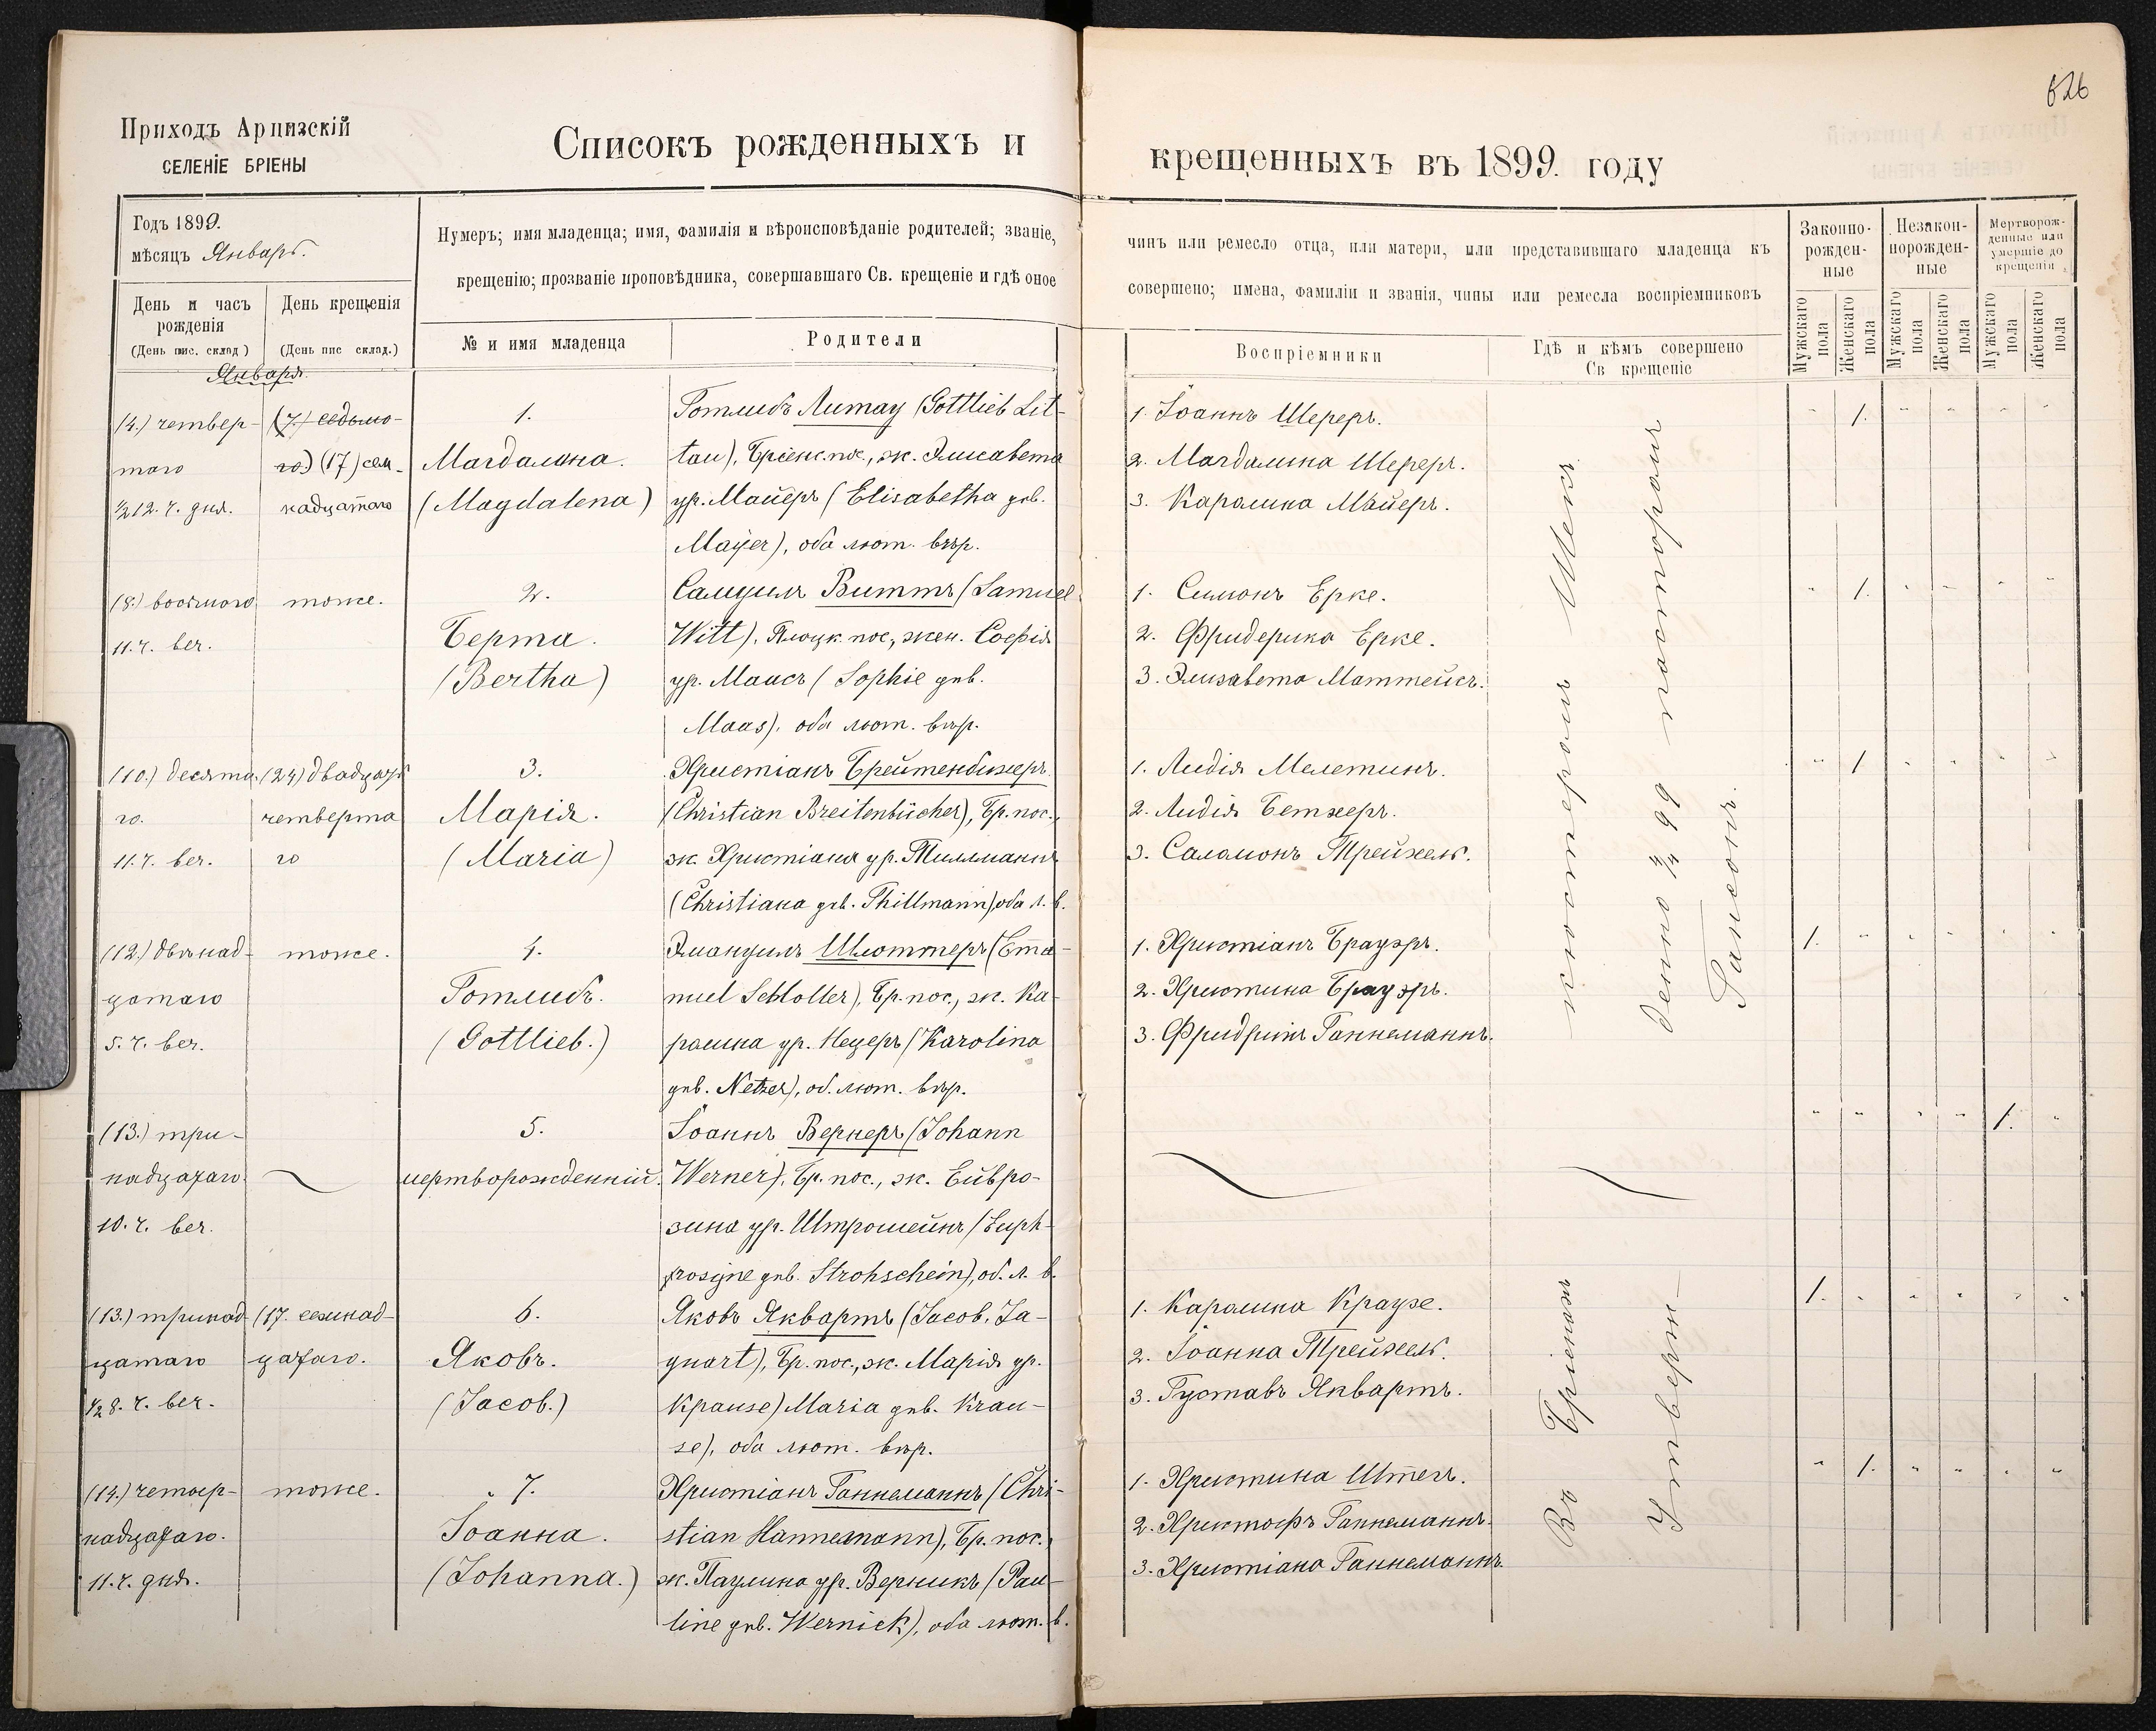 626
Приходъ Арцизскій
СЕЛЕНІЕ БРІЕНЫ
Списокъ рожденныхъ и
крещенныхъ въ 1899. году
Годъ 1899.
мѣсяцъ Январь.
День и часъ
рожденія
(День пис. склад)
День крещенія
(День пис склад.)
Нумеръ; имя младенца; имя, фамилія и вѣроисповѣданіе родителей; званіе,
крещенію; прозваніе проповѣдника, совершавшаго Св. крещеніе и гдѣ оное
№ и имя младенца
Родители
чинъ или ремесло отца, или матери, или представившаго младенца къ
совершено; имена, фамиліи и званія, чины или ремесла воспріемниковъ
Воспріемники
Гдѣ и кѣмъ совершено
Св крещеніе
Законно-
рожден-
ные
Незакон-
норожден-
ные
Мертворож-
денные или
умершіе до
крещенія
Мужскаго пола
Женскаго пола
Мужскаго пола
Женскаго пола
Мужскаго пола
Женскаго пола
Января.
(4.) четвер-
таго
½12. ч. дня.
(7.) седьмо-
го.) (17) сем-
надцатаго
1.
Магдалена.
(Magdalena)
Готлибъ Литау (Gottlieb Lit-
tau), Бріенс. пос., ж. Элисавета
ур. Майеръ (Elisabetha дѣв.
Mayer), оба лют. вѣр.
1. Іоаннъ Шереръ.
2. Магдалина Шереръ.
3. Каролина Майеръ.
1.
(8.) восьмого
11. ч. веч.
тоже.
2.
Берта.
(Bertha)
Самуилъ Виттъ (Samuel
Witt), Плоцк. пос., жен. Софія
ур. Маасъ (Sophie дѣв.
Maas), оба лют. вѣр.
1. Симонъ Ерке.
2. Фридерика Ерке.
3. Элизавета Маттейсъ.
1.
(10.) десята-
го.
11. ч. веч.
(24) двадцать
четверта
го
3.
Марія.
(Maria)
Христіанъ Брейтенбихеръ
(Christian Breitenbücher), Бр. пос.,
ж. Христіана ур. Тиллманнъ
(Christiana дѣв. Thillmann), оба л. в.
1. Лидія Мелетинъ.
2. Лидія Бетхеръ.
3. Саломонъ Трейхель.
1
(12.) двѣнад-
цатаго
5. ч. веч.
тоже.
4.
Готлибъ.
(Gottlieb.)
Эмануилъ Шлоттеръ (Ema-
nuel Schlotter), Бр. пос., ж. Ка-
ролина ур. Нецеръ (Karolina
дѣв. Netzer), об. лют. вѣр.
1. Христіанъ Брауэръ.
2. Христина Брауэръ.
3. Фридрихъ Ганнеманнъ.
1.
(13.) три-
надцатаго.
10. ч. веч.
5.
мертворожденній.
Іоаннъ Вернеръ (Johann
Werner), Бр. пос., ж. Ейвро-
зина ур. Штрошейнъ (Euph-
rosyne дѣв. Strohschein), об. л. в.
1.
(13.) тринад-
цатаго
½8. ч. веч.
(17. семнад-
цатаго.
6.
Яковъ.
(Jacob.)
Яковъ Яквартъ (Jacob. Ja-
quart), Бр. пос., ж. Марія ур.
Краузе) Maria дѣв. Krau-
se), оба лют. вѣр.
1. Каролина Краузе.
2. Іоанна Трейхель.
3. Густавъ Яквартъ.
1.
(14.) четыр-
надцатаго.
11. ч. дня.
тоже.
7.
Іоанна.
(Johanna.)
Христіанъ Ганнеманнъ (Chri-
stian Hannemann), Бр. пос.,
ж. Паулина ур. Верникъ (Pau-
line дѣв. Wernick), оба лют. в.
1. Христина Штегъ.
2. Христофъ Ганнеманнъ.
3. Христіана Ганнеманнъ.
1.
Въ Бріенахъ кюстеромъ Шенъ
Утверж-
дено 3/4 99 пасторомъ
Гансонъ.